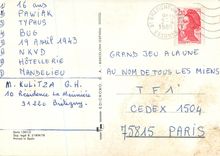 16 ans
PAWIAK
TYPHUS
BUG
19 Avril 1943
NKVD
HÔTELLERIE
MANDELIEU
M. KULITZA G.H.
10 Résidence La
91220 Brétigny
GRAND JEU A LA UNE
AU NOM DE TOUS LES MIENS
TF1
CEDEX 1504
75815 PARIS